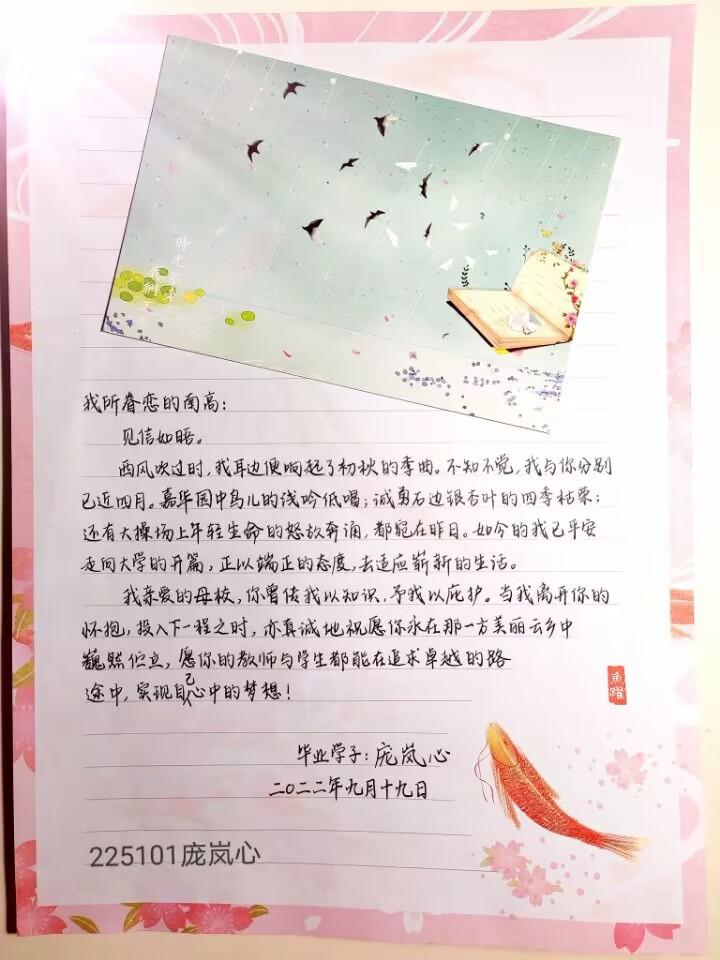 我所眷恋的南高：
见信如晤。
西风吹过时，我耳边便响起了初秋的季曲。不知不觉，我与你分别
已近四月。嘉华园中鸟儿的浅吟低唱；诚勇石边银杏叶的四季枯荣；
还有大操场上年轻生命的怒放奔涌，都宛在昨日。如今的我已平安
走向大学的开篇，正以端正的态度，去适应崭新的生活。
我亲爱的母校，你曾传我以知识，予我以庇护。当我离开你的
怀抱，投入下一程之时，亦真诚地祝愿你永在那一方美丽云乡中
巍然伫立，愿你的教师与学生都能在追求卓越的路
途中，实现自己心中的梦想！
魚躍
毕业学子：庞岚心
二〇二二年九月十九日
225101庞岚心